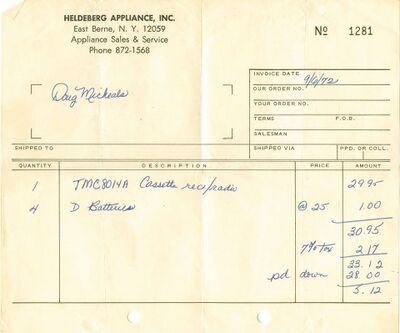 HELDEBERG APPLIANCE, INC.
East Berne, N. Y. 12059
Appliance Sales & Service
Phone 872-1568
No 1281
INVOICE DATE 9/6/72
Doug Micheals
OUR ORDER NO.
YOUR ORDER NO.
TERMS F.O.B.
SALESMAN
SHIPPED TO SHIPPED VIA PPD. OR COLL.
QUANTITY DESCRIPTION PRICE AMOUNT
1 TMC8014A Cassette rec/radio 29.95
4 D Batteries @ 25 1.00
30.95
7% Tax 2.17
33.12
pd down 28.00
5.12